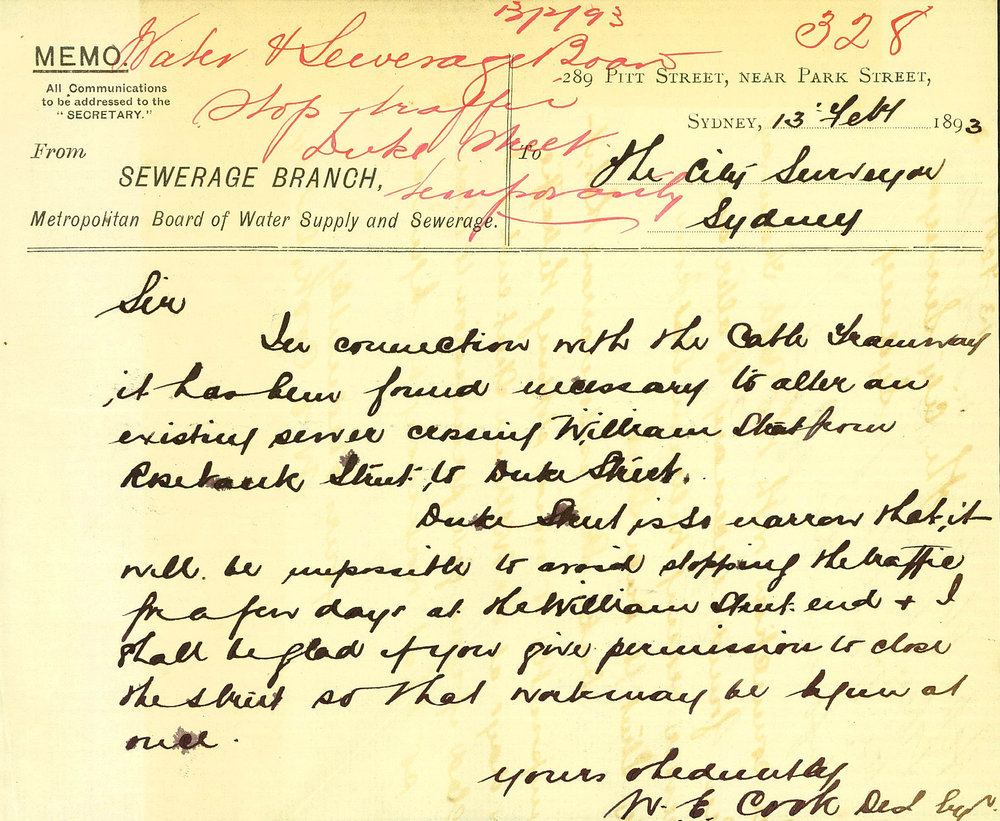 13/2/93
328
Water & Sewerage Board
stop traffic
Duke Street
temporarily
MEMO.
All Communications
to be addressed to the
"SECRETARY."
From
SEWERAGE BRANCH,
Metropolitan Board of Water Supply and Sewerage.
289 PITT STREET, NEAR PARK STREET,
SYDNEY, 13 Feb 1893
To
The City Surveyor
Sydney
Sir
In connection with the Cable Tramway
it has been found necessary to alter an
existing sewer crossing William Street from
Rosebank Street to Duke Street.
Duke Street is so narrow that it
will be impossible to avoid stopping the traffic
for a few days at the William Street end & I
shall be glad if you give permission to close
the street so that work may be begun at
once.
Yours obediently
W. E. Cook